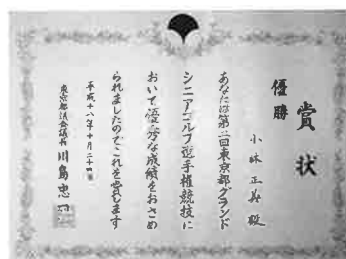 賞状
優勝
小林正美殿
あなたは第二回東京都グランド
シニアゴルフ選手権競技に
おいて優秀な成績をおさめ
られましたのでこれを賞します
平成十八年十月二十四日
東京都議会議長 川島忠